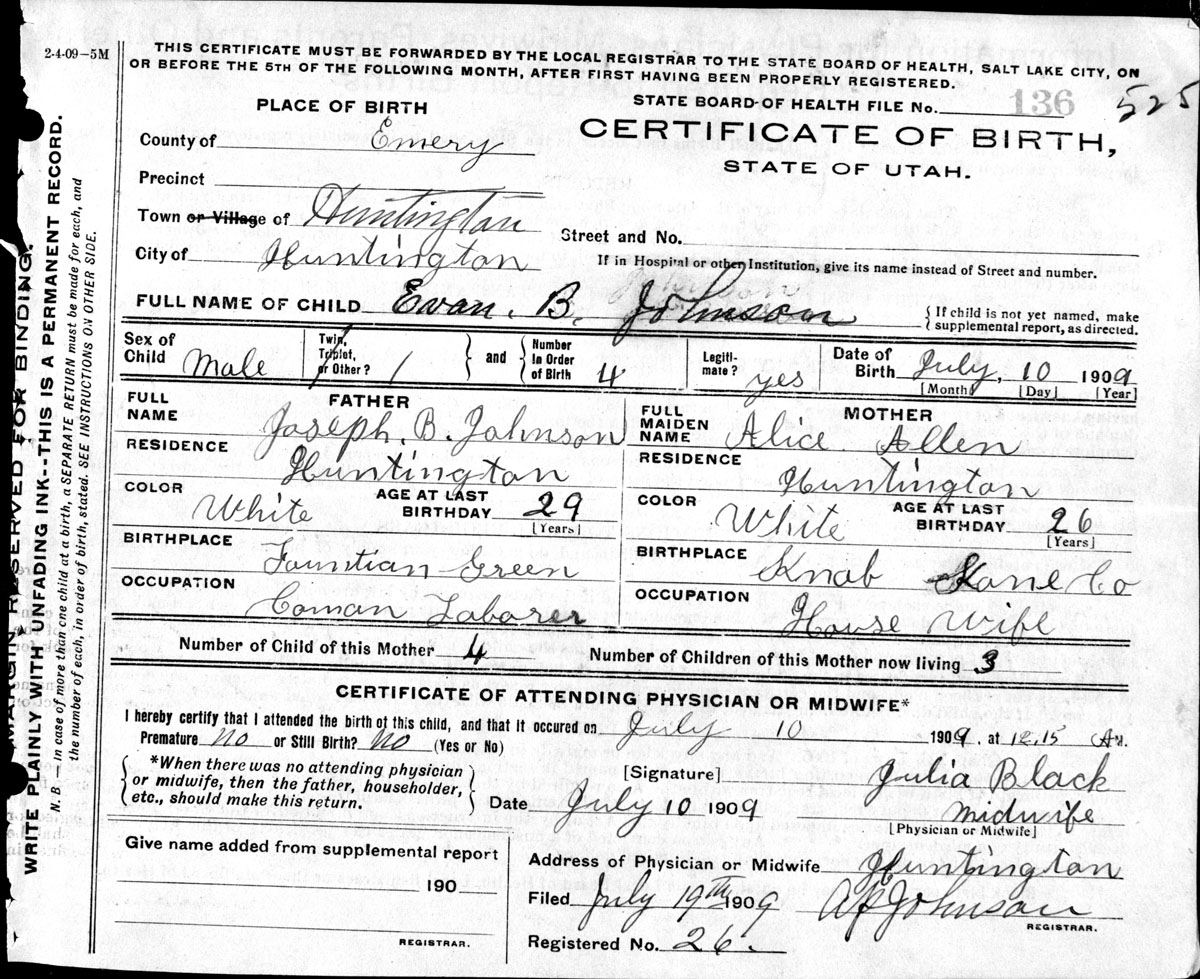 2-4-09—5M
THIS CERTIFICATE MUST BE FORWARDED BY THE LOCAL REGISTRAR TO THE STATE BOARD OF HEALTH, SALT LAKE CITY, ON
OR BEFORE THE 5TH OF THE FOLLOWING MONTH, AFTER FIRST HAVING BEEN PROPERLY REGISTERED.
PLACE OF BIRTH
STATE BOARD OF HEALTH FILE No. 136 525
County of Emery
CERTIFICATE OF BIRTH,
STATE OF UTAH.
Precinct
Town or Village of Huntington
Street and No.
City of Huntington
If in Hospital or other Institution, give its name instead of Street and number.
FULL NAME OF CHILD Evan. B. Johnson
{ If child is not yet named, make
supplemental report, as directed.
Sex of Child Male
Twin, Triplet, or Other? 1
and
Number in Order of Birth 4
Legiti-mate? yes
Date of Birth July, 10 1909
[Month] [Day] [Year]
FATHER
FULL NAME Joseph. B. Johnson
RESIDENCE Huntington
COLOR White
AGE AT LAST BIRTHDAY 29
[Years]
BIRTHPLACE Fountian Green
OCCUPATION Coman Laborer
MOTHER
FULL MAIDEN NAME Alice Allen
RESIDENCE Huntington
COLOR White
AGE AT LAST BIRTHDAY 26
[Years]
BIRTHPLACE Knab Kane Co
OCCUPATION House Wife
Number of Child of this Mother 4
Number of Children of this Mother now living 3
CERTIFICATE OF ATTENDING PHYSICIAN OR MIDWIFE*
I hereby certify that I attended the birth of this child, and that it occured on July 10 1909, at 12,15 AM.
Premature no or Still Birth? no (Yes or No)
*When there was no attending physician
or midwife, then the father, householder,
etc., should make this return.
[Signature] Julia Black
Date July 10 1909 midwife
[Physician or Midwife]
Give name added from supplemental report
190
REGISTRAR.
Address of Physician or Midwife Huntington
Filed July 19th 1909 Johnson
REGISTRAR.
Registered No. 26.
MARGIN RESERVED FOR BINDING.
WRITE PLAINLY WITH UNFADING INK--THIS IS A PERMANENT RECORD.
N. B.—In case of more than one child at a birth, a SEPARATE RETURN must be made for each, and
the number of each, in order of birth, stated. SEE INSTRUCTIONS ON OTHER SIDE.